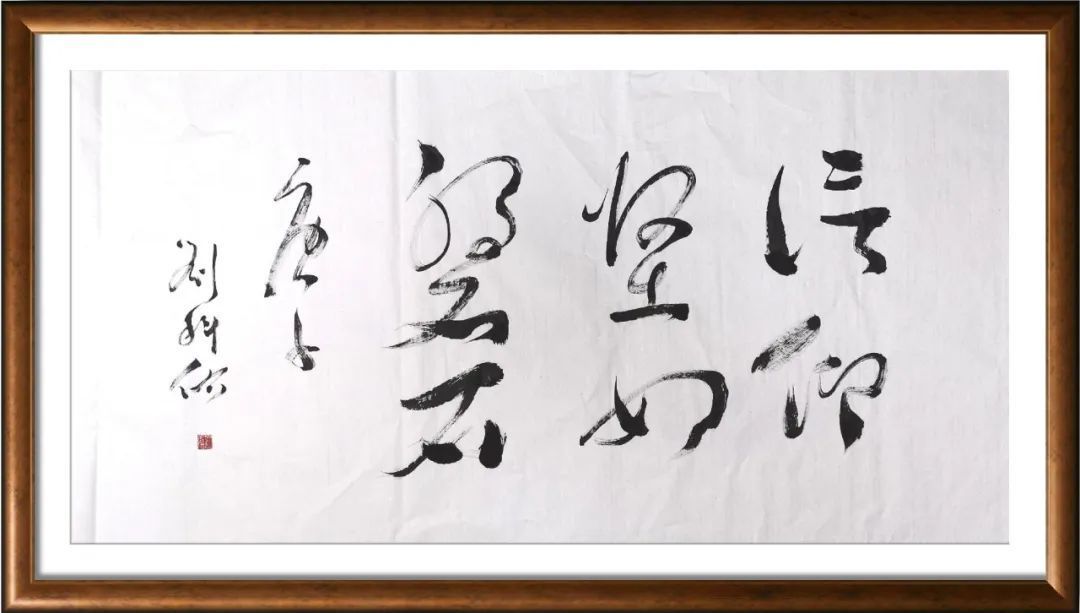 信仰
坚如
磐石
庚子
刘科佑